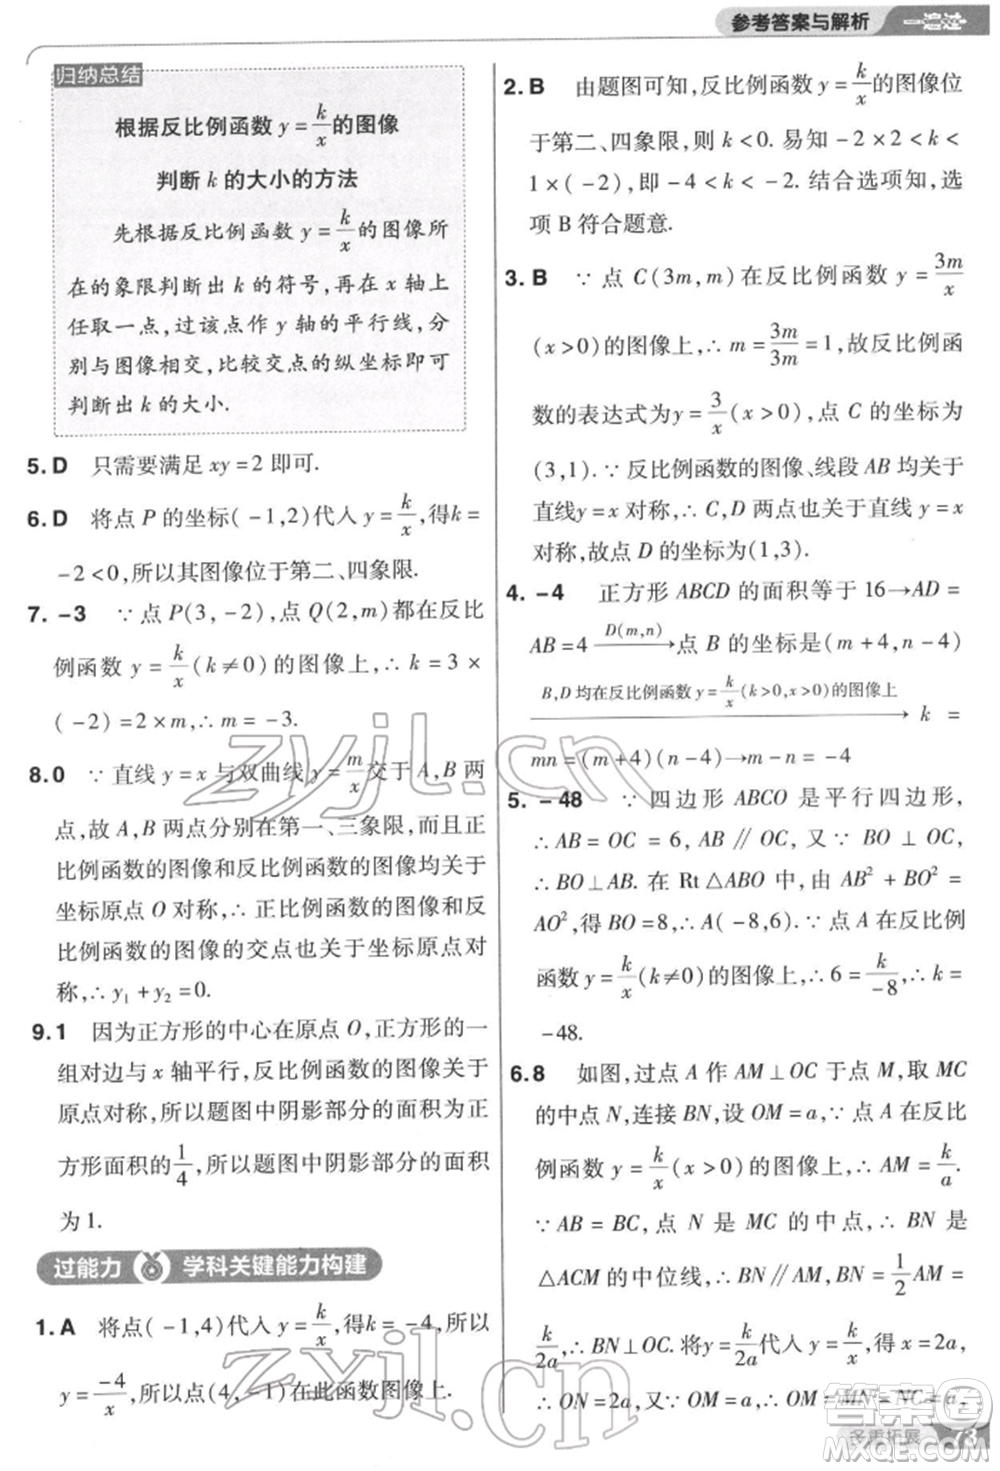 参考答案与解析
一遍过
归纳总结
根据反比例函数 y=k/x 的图像
判断 k 的大小的方法
先根据反比例函数 y=k/x 的图像所
在的象限判断出 k 的符号,再在 x 轴上
任取一点,过该点作 y 轴的平行线,分
别与图像相交,比较交点的纵坐标即可
判断出 k 的大小.
5.D 只需要满足 xy=2 即可.
6.D 将点 P 的坐标(-1,2)代入 y=k/x,得k=
-2<0,所以其图像位于第二、四象限.
7.-3 ∵点 P(3,-2),点 Q(2,m)都在反比
例函数 y=k/x(k≠0)的图像上,∴k=3×
(-2)=2×m,∴m=-3.
8.0 ∵直线 y=x 与双曲线 y=m/x交于 A,B 两
点,故 A,B 两点分别在第一、三象限,而且正
比例函数的图像和反比例函数的图像均关于
坐标原点 O 对称,∴正比例函数的图像和反
比例函数的图像的交点也关于坐标原点对
称,∴y₁+y₂=0.
9.1 因为正方形的中心在原点 O,正方形的一
组对边与 x 轴平行,反比例函数的图像关于
原点对称,所以题图中阴影部分的面积为正
方形面积的1/4,所以题图中阴影部分的面积
为 1.
过能力 学科关键能力构建
1.A 将点(-1,4)代入 y=k/x,得k=-4,所以
y=-4/x,所以点(4,-1)在此函数图像上.
2.B 由题图可知,反比例函数 y=k/x的图像位
于第二、四象限,则 k<0. 易知 -2×2<k<
1×(-2),即 -4<k<-2. 结合选项知,选
项 B 符合题意.
3.B ∵点 C(3m,m)在反比例函数 y=3m/x
(x>0)的图像上,∴m=3m/3m=1,故反比例函
数的表达式为y=3/x(x>0),点 C 的坐标为
(3,1).∵反比例函数的图像、线段 AB 均关于
直线y=x 对称,∴C,D 两点也关于直线 y=x
对称,故点 D 的坐标为(1,3).
4.-4 正方形 ABCD 的面积等于 16→AD=
AB=4 D(m,n)→点 B 的坐标是(m+4,n-4)
B,D 均在反比例函数 y=k/x(k>0,x>0)的图像上→ k=
mn=(m+4)(n-4)→mn=m-n=-4
5.-48 ∵四边形 ABCO 是平行四边形,
∴AB=OC=6,AB∥OC,又∵BO⊥OC,
∴BO⊥AB. 在 Rt△ABO 中,由 AB²+BO²=
AO²,得 BO=8,∴A(-8,6).∵点 A 在反比例
函数 y=k/x(k≠0)的图像上,∴6=k/-8,∴k=
-48.
6.8 如图,过点 A 作 AM⊥OC 于点 M,取 MC
的中点 N,连接 BN,设 OM=a,∵点 A 在反比
例函数 y=k/x(x>0)的图像上,∴AM=k/a.
∵AB=BC,点 N 是 MC 的中点,∴BN 是
△ACM 的中位线,∴BN∥AM,BN=1/2AM=
k/2a,∴BN⊥OC. 将y=k/2a代入 y=k/x,得 x=2a,
∴ON=2a,又∵OM=a,∴OM=MN=NC=a,
多重拓展 73
zyjl.cn
zyjl.cn
答案圈
MXQE.COM